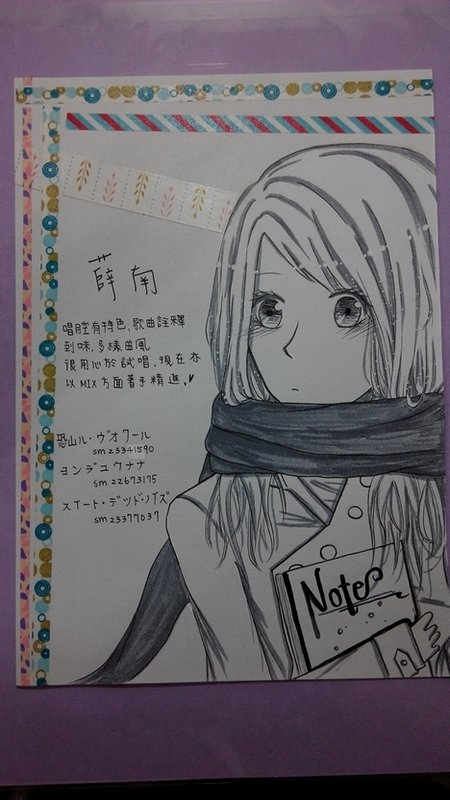 薛南
唱腔有特色,歌曲詮釋
到味,多樣曲風
很用心於試唱,現在亦
以MIX方面著手精進,♥
恐山ル・ヴォワール
sm23341590
ヨンデユウナナ
sm22673175
スイート・デッド・ノイズ
sm23377037
Note